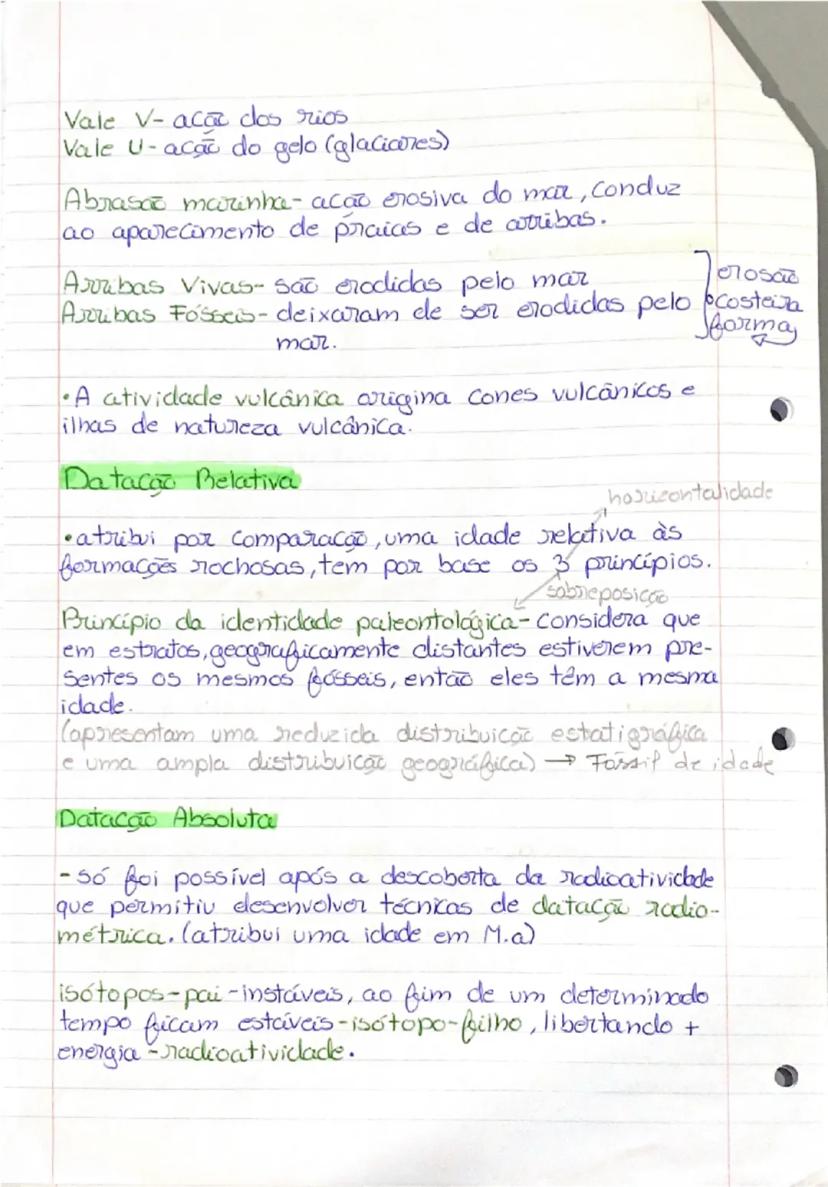 Vale V- ação dos rios
Vale U- ação do gelo (glaciares)
Abrasão marinha- ação erosiva do mar, conduz
ao aparecimento de praias e de arribas.
Arribas Vivas- são erodidas pelo mar
Arribas Fósseis- deixaram de ser erodidas pelo
mar.
erosão
costeira
forma
•A atividade vulcânica origina cones vulcânicos e
ilhas de natureza vulcânica.
Datação Relativa
horizontalidade
•atribui por comparação, uma idade relativa às
formações rochosas, tem por base os 3 princípios.
sobreposição
Princípio da identidade paleontológica- considera que
em estratos, geograficamente distantes estiverem pre-
sentes os mesmos fósseis, então eles têm a mesma
idade.
(apresentam uma reduzida distribuição estatigráfica
e uma ampla distribuição geográfica) → Fóssil de idade
Datação Absoluta
-só foi possível após a descoberta da radioatividade
que permitiu desenvolver técnicas de datação radio-
métrica. (atribui uma idade em M.a)
isótopos-pai-instáveis, ao fim de um determinado
tempo ficam estáveis-isótopo-filho, libertando +
energia-radioatividade.